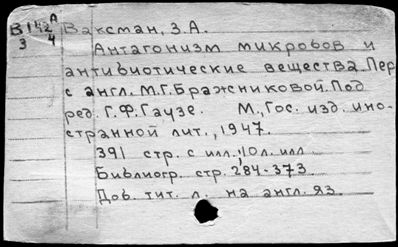 В142 А Ваксман, З.А.
3 4
Антагонизм микробов и
антибиотические вещества. Пер.
с англ. М.Г. Бражниковой. Под
ред. Г.Ф. Гаузе. М., Гос. изд. ино-
странной лит., 1947.
391 стр. с илл., 10 л. илл
Библиогр. стр. 284-373.
Доб. тит. л. на англ. яз.